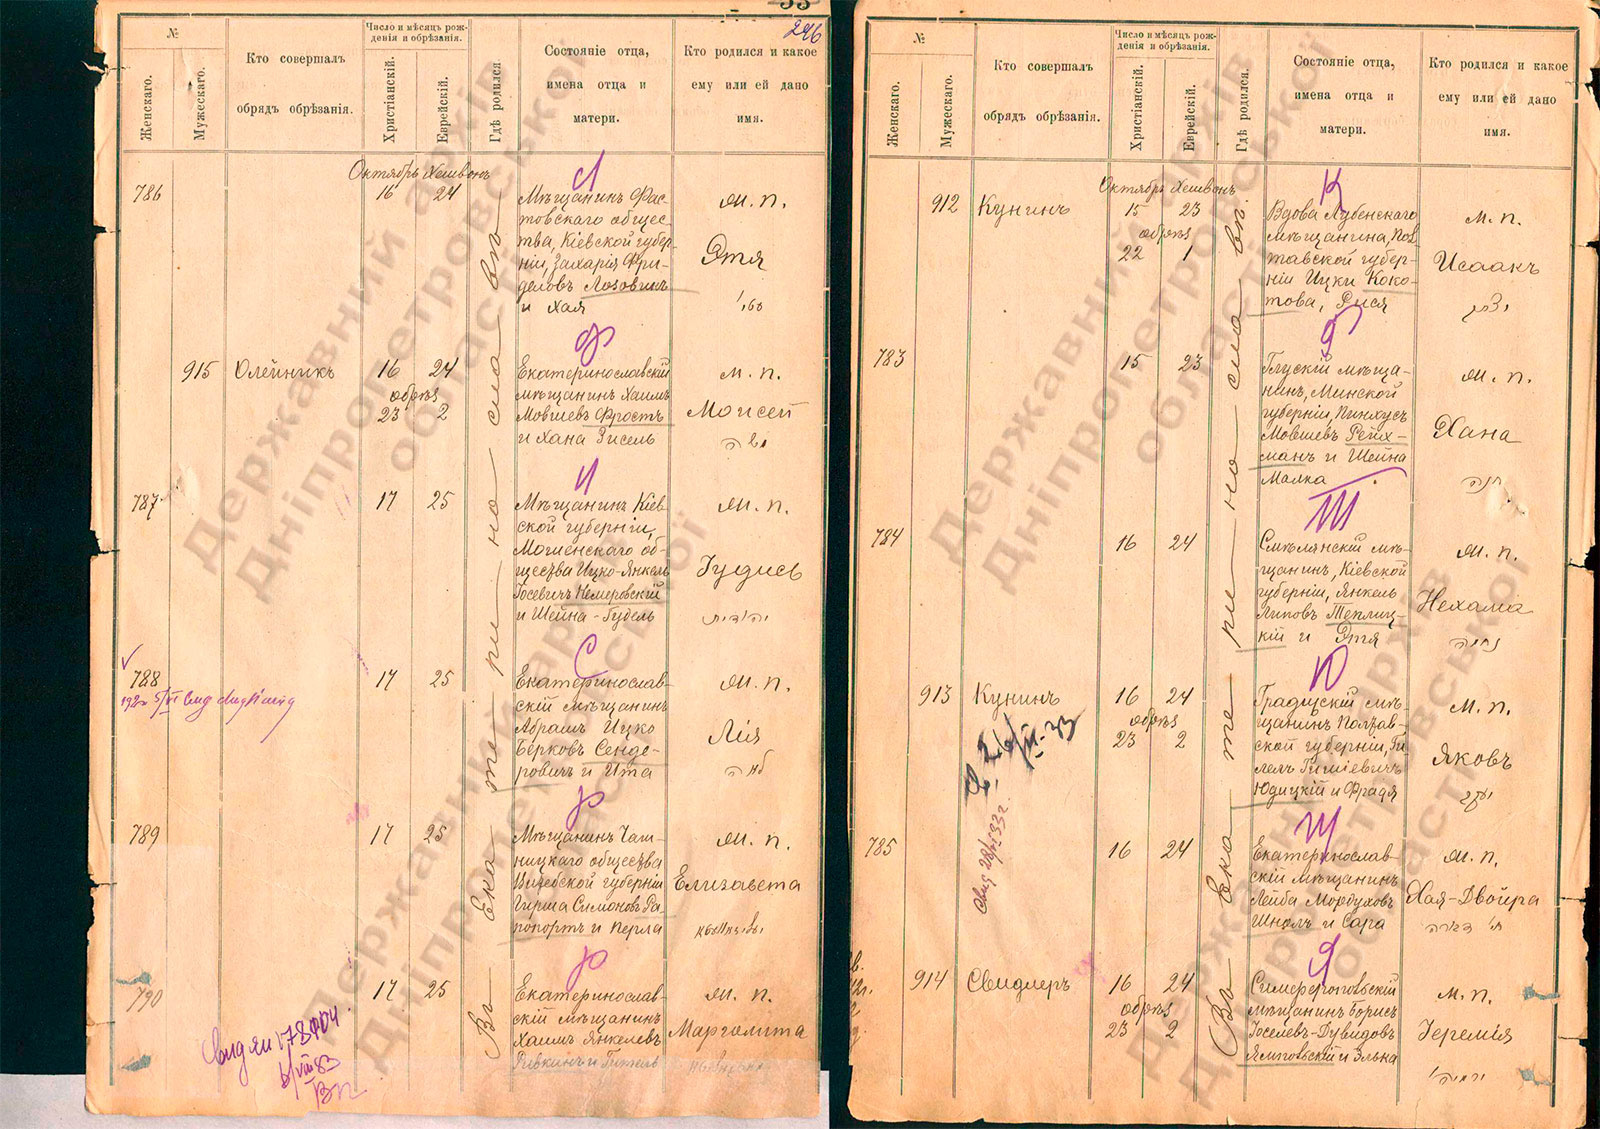 246
№
Женскаго.
Мужескаго.
Кто совершалъ
обрядъ обрѣзанія.
Число и мѣсяцъ рож-
денія и обрѣзанія.
Христіанскій.
Еврейскій.
Гдѣ родился
Состояніе отца,
имена отца и
матери.
Кто родился и какое
ему или ей дано
имя.
Октябрь Хешвонъ
Въ Екатеринославѣ
Л
786
16 24
Мѣщанинъ Фас-
товскаго общес-
тва, Кіевской губер-
ніи, Захарія Фри-
деловъ Лозовикъ
и Хая
м. п.
Этя
Ф
915 Олейникъ
16 24
обрѣз
23 2
Екатеринославскій
мѣщанинъ Хаимъ
Мовшевъ Фростъ
и Хана Гисель
м. п.
Моисей
משה
И
787
17 25
Мѣщанинъ Кіев-
ской губерніи,
общества Ицко-Янкель
Іосевичъ Немеровскій
и Шейна-Гудель
м. п.
Іудись
יהודית
С
788
17 25
Екатеринослав-
скій мѣщанинъ
Абрамъ Ицко
Берковъ Сендe-
ровичъ и Ита
м. п.
Лія
לאה
Р
789
17 25
Мѣщанинъ Чаш-
ницкаго общества
Витебской губерніи
Гирша Симоновъ Ра-
попортъ и Перла
м. п.
Елизавета
Р
790
17 25
Екатеринослав-
скій мѣщанинъ
Хаимъ Янкелевъ
Ривкинъ и Гитель
м. п.
Маргалита
№
Женскаго.
Мужескаго.
Кто совершалъ
обрядъ обрѣзанія.
Число и мѣсяцъ рож-
денія и обрѣзанія.
Христіанскій.
Еврейскій.
Гдѣ родился.
Состояніе отца,
имена отца и
матери.
Кто родился и какое
ему или ей дано
имя.
Октябрь Хешвонъ
Въ Екатеринославѣ
К
912 Кунинъ
15 23
обрѣз
22 1
Вдова Лубенскаго
мѣщанина, Пол-
тавской губер-
ніи Ицки Коко-
това, Рися
м. п.
Исаакъ
יצחק
783
15 23
Глускій мѣща-
нинъ, Минской
губерніи, Пинхусъ
Мовшевъ Рейх-
манъ и Шейна
Малка
м. п.
Хана
חנה
Т
784
16 24
Смѣлянскій мѣ-
щанинъ, Кіевской
губерніи, Янкель
Липовъ Теплиц-
кій и Этя
м. п.
Нехама
נחמה
Ю
913 Кунинъ
16 24
обрѣз
23 2
Градижскій мѣ-
щанинъ Полтав-
ской губерніи, Ги-
Юдицкій и Фрадя
м. п.
Яковъ
יעקב
Ш
785
16 24
Екатеринослав-
скій мѣщанинъ
Лейба Мордуховъ
и Сара
м. п.
Хая-Двойра
חי' דבורה
Я
914 Свидлеръ
16 24
обрѣз
23 2
Симферопольскій
мѣщанинъ Борисъ
Іоселевъ-Дувидовъ
Ямпольскій и Элька
м. п.
Іеремія
ירמיה
Державний архів
Дніпропетровської
області